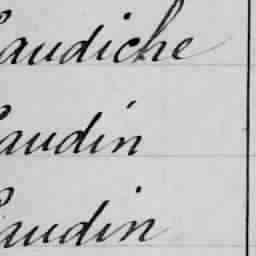 audiche
audin
audin